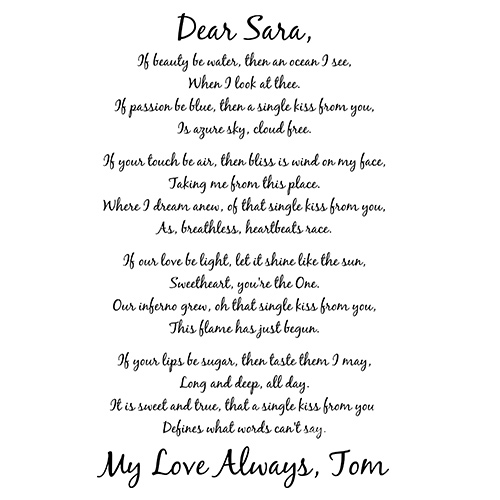 Dear Sara,
If beauty be water, then an ocean I see,
When I look at thee.
If passion be blue, then a single kiss from you,
Is azure sky, cloud free.
If your touch be air, then bliss is wind on my face,
Taking me from this place.
Where I dream anew, of that single kiss from you,
As, breathless, heartbeats race.
If our love be light, let it shine like the sun,
Sweetheart, you're the One.
Our inferno grew, oh that single kiss from you,
This flame has just begun.
If your lips be sugar, then taste them I may,
Long and deep, all day.
It is sweet and true, that a single kiss from you
Defines what words can't say.
My Love Always, Tom